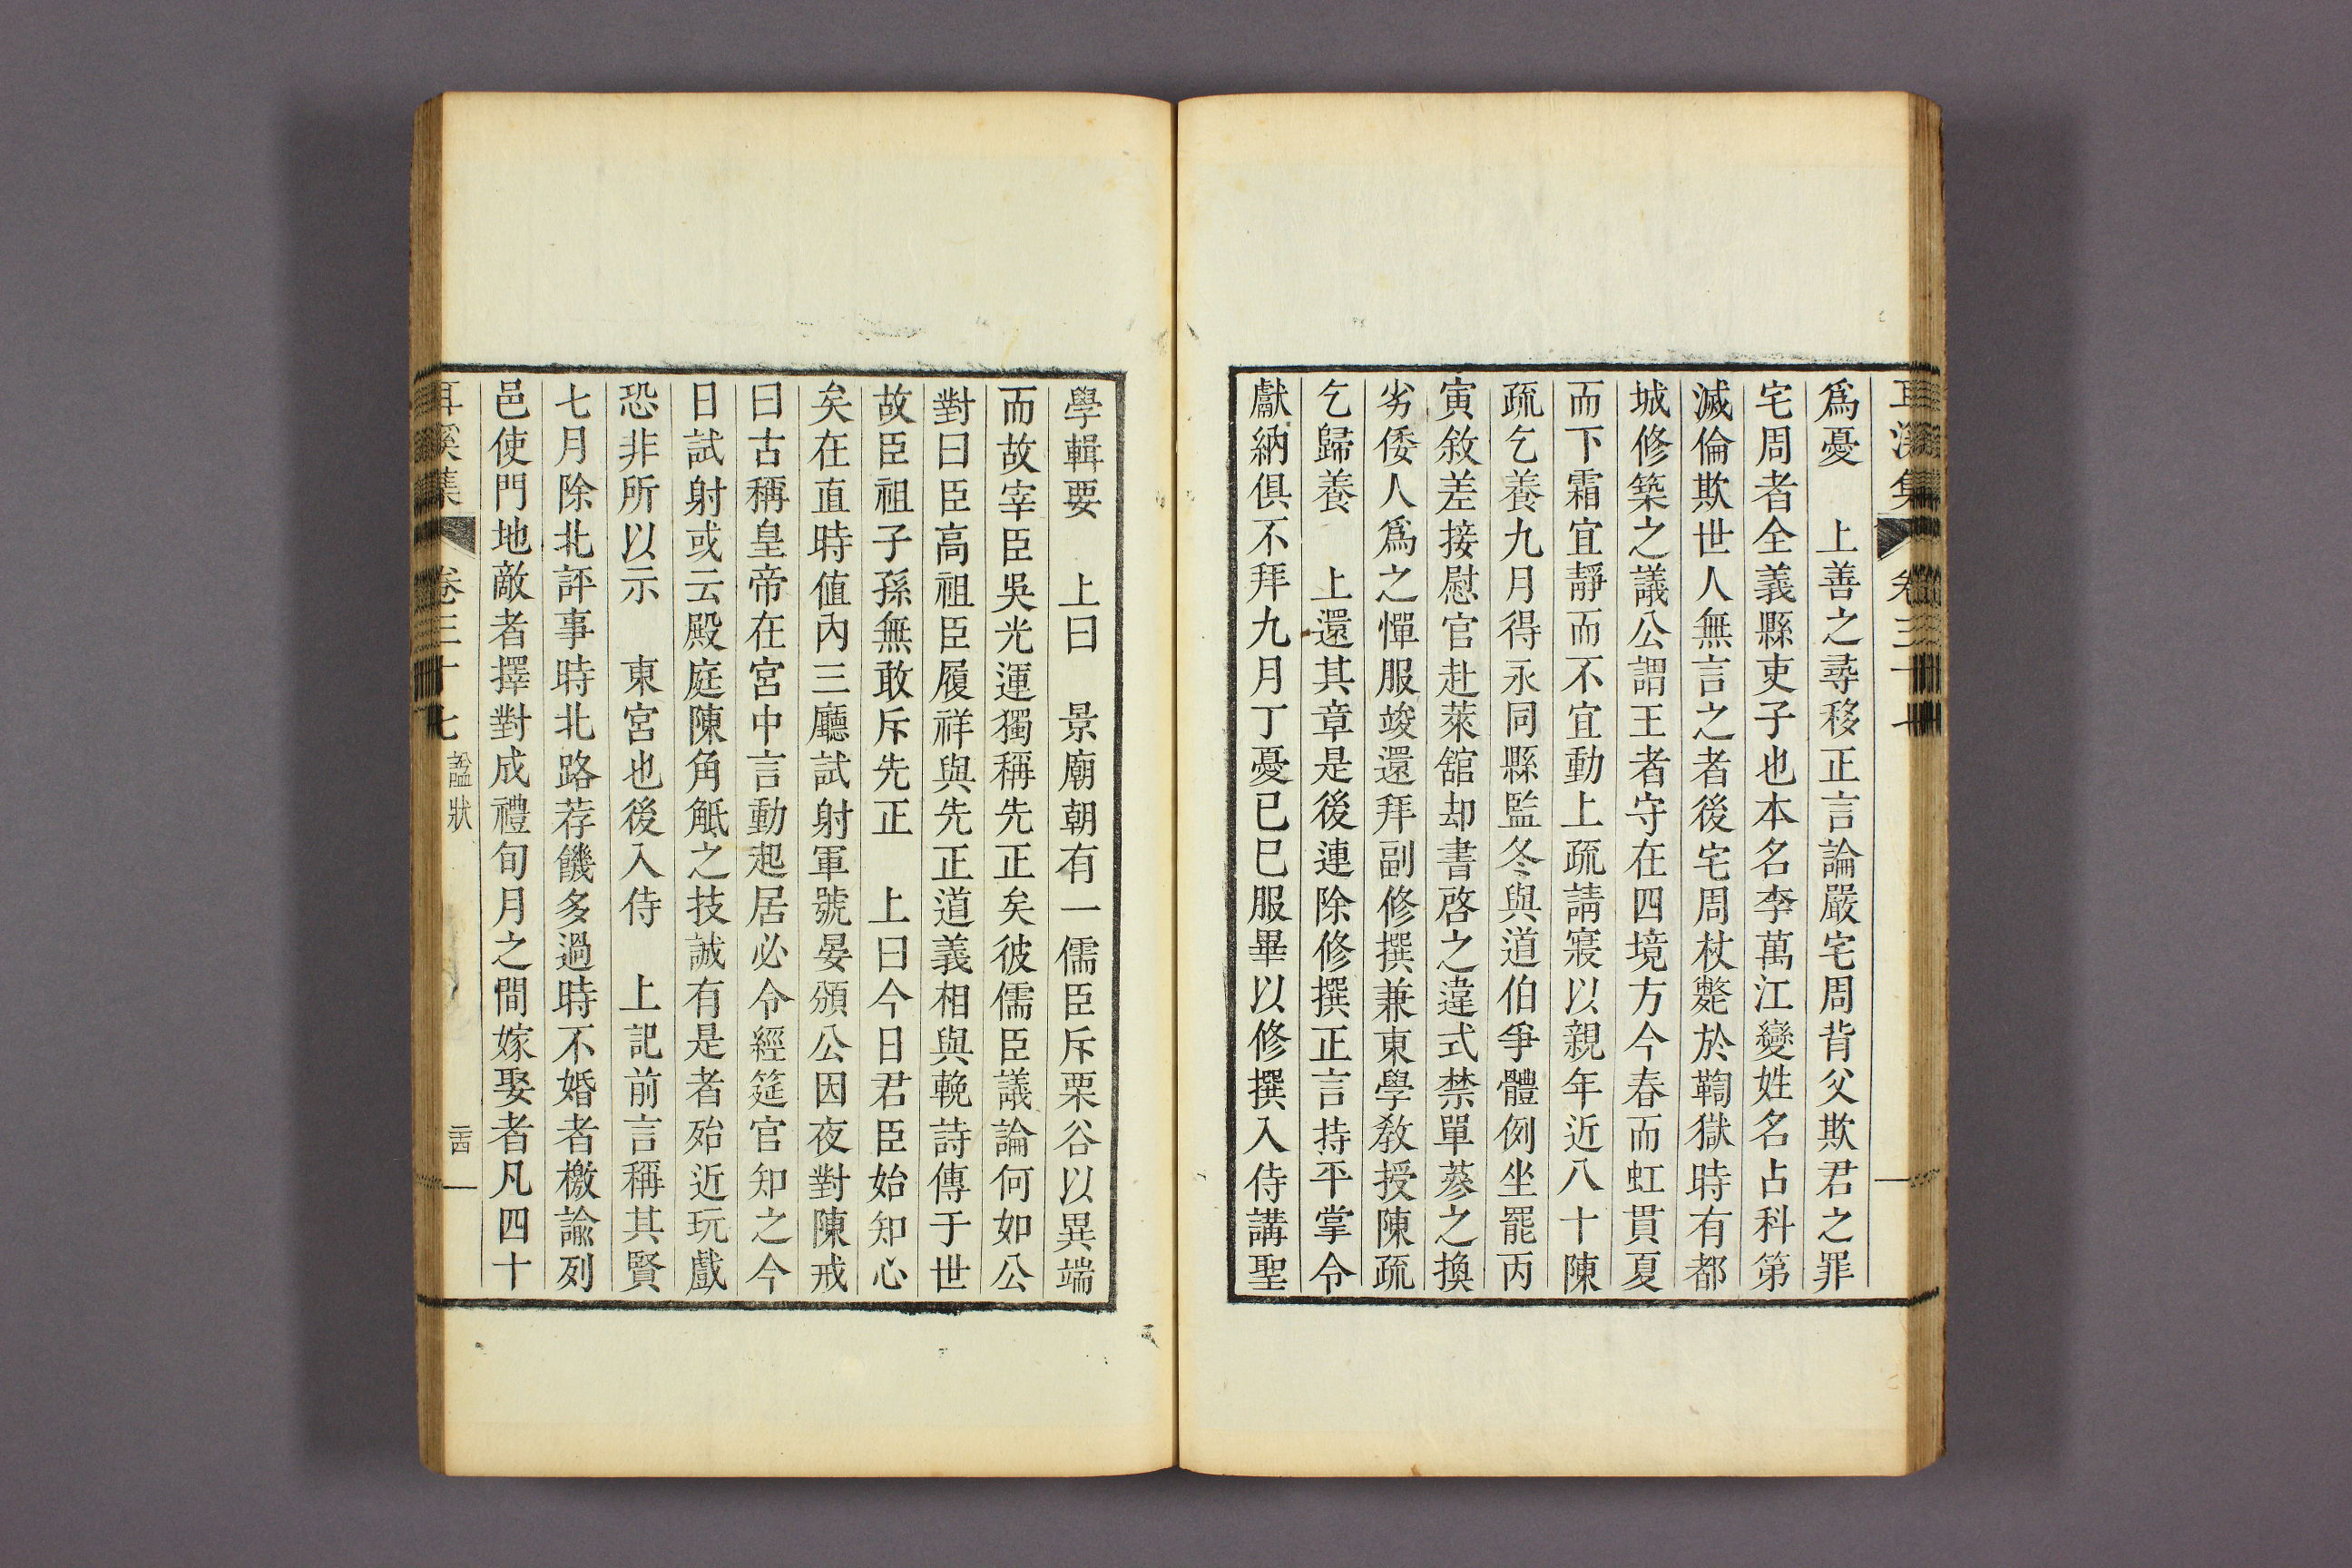 爲憂　上善之尋移正言論嚴宅周背父欺君之罪
宅周者全義縣吏子也本名李萬江變姓名占科第
滅倫欺世人無言之者後宅周杖斃於鞫獄時有都
城修築之議公謂王者守在四境方今春而虹貫夏
而下霜宜靜而不宜動上疏請寢以親年近八十陳
疏乞養九月得永同縣監冬與道伯爭體例坐罷丙
寅敘差接慰官赴萊舘却書啓之違式禁單蔘之換
劣倭人爲之憚服竣還拜副修撰兼東學敎授陳疏
乞歸養　上還其章是後連除修撰正言持平掌令
獻納俱不拜九月丁憂己巳服畢以修撰入侍講聖
學輯要　上曰　景廟朝有一儒臣斥栗谷以異端
而故宰臣吳光運獨稱先正矣彼儒臣議論何如公
對曰臣高祖臣履祥與先正道義相與輓詩傳于世
故臣祖子孫無敢斥先正　上曰今日君臣始知心
矣在直時値內三廳試射軍號晏頒公因夜對陳戒
曰古稱皇帝在宮中言動起居必令經筵官知之今
日試射或云殿庭陳角觝之技誠有是者殆近玩戲
恐非所以示　東宮也後入侍　上記前言稱其賢
七月除北評事時北路荐饑多過時不婚者檄諭列
邑使門地敵者擇對成禮旬月之間嫁娶者凡四十
耳溪集　卷三十七　諡狀　二十四